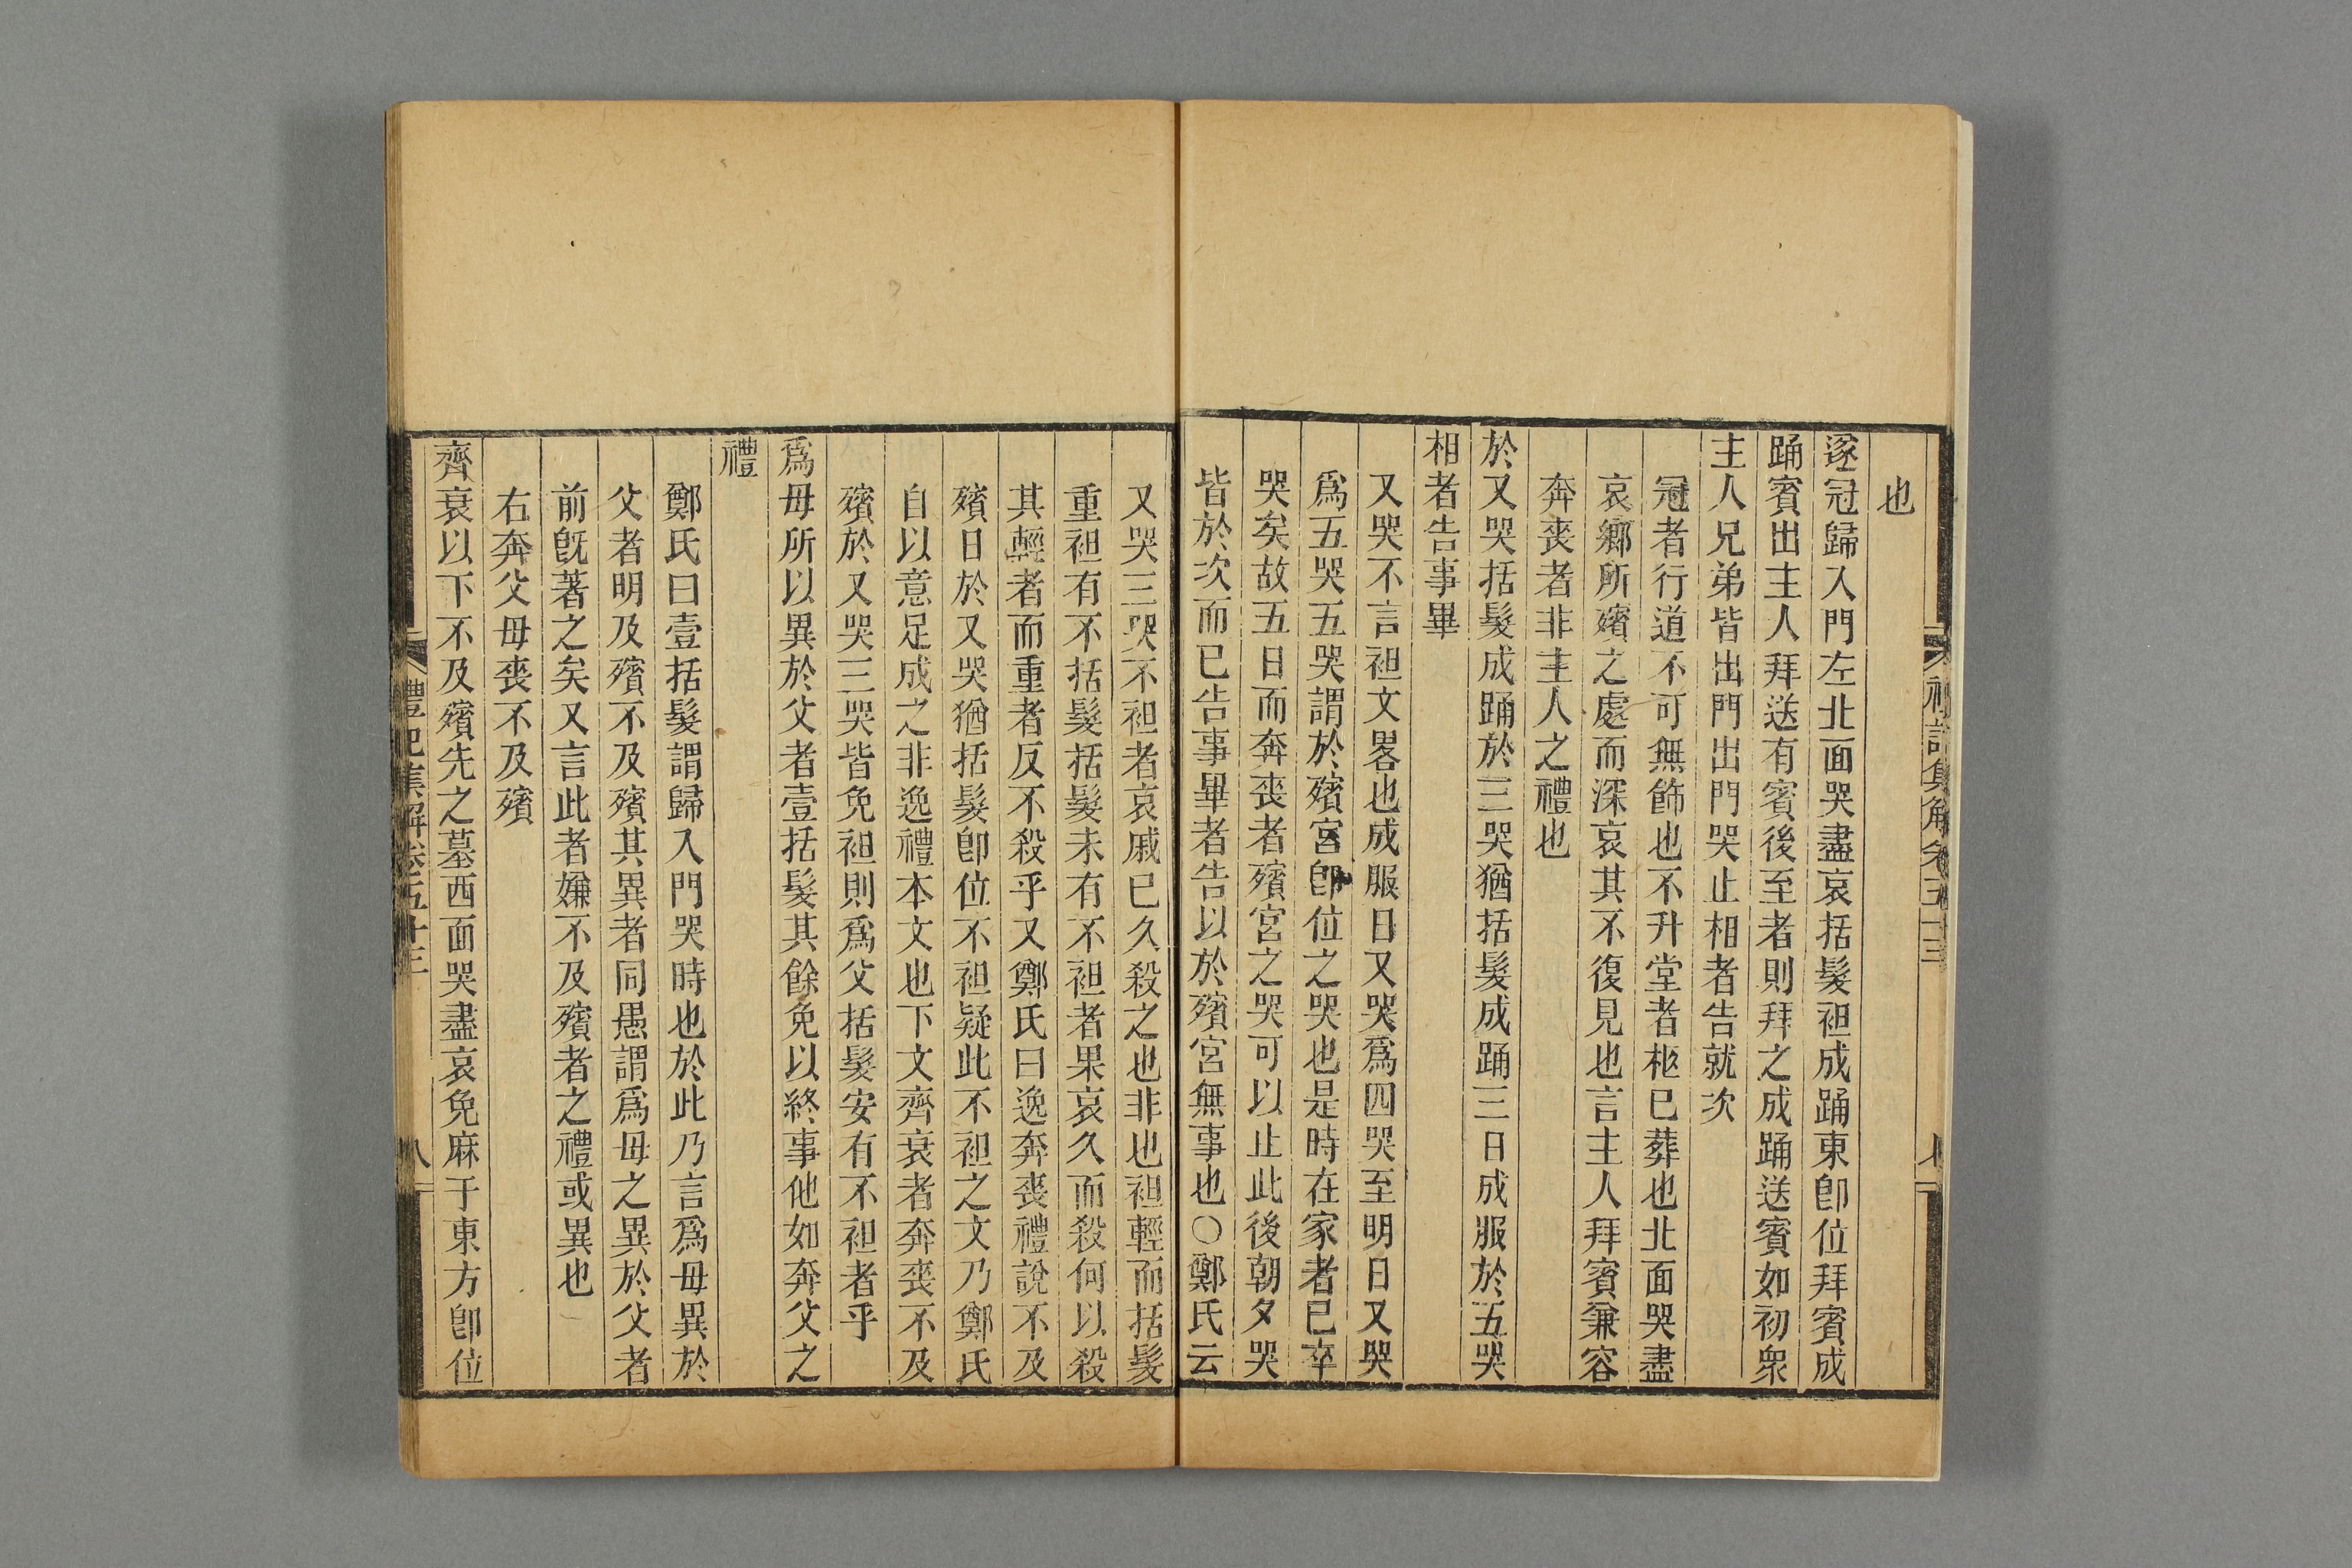 也
遂冠歸入門左北面哭盡哀括髮袒成踊東卽位拜賓成
踊賓出主人拜送有賓後至者則拜之成踊送賓如初衆
主人兄弟皆出門出門哭止相者告就次
冠者行道不可無飾也不升堂者柩巳葬也北面哭盡
哀鄉所殯之處而深哀其不復見也言主人拜賓兼容
奔喪者非主人之禮也
於又哭括髮成踊於三哭猶括髮成踊三日成服於五哭
相者告事畢
又哭不言袒文畧也成服日又哭爲四哭至明日又哭
爲五哭五哭謂於殯宮卽位之哭也是時在家者巳卒
哭矣故五日而奔喪者殯宮之哭可以止此後朝夕哭
皆於次而巳告事畢者告以於殯宮無事也○鄭氏云
又哭三哭不袒者哀戚巳久殺之也非也袒輕而括髮
重袒有不括髮括髮未有不袒者果哀久而殺何以殺
其輕者而重者反不殺乎又鄭氏曰逸奔喪禮說不及
殯日於又哭猶括髮卽位不袒疑此不袒之文乃鄭氏
自以意足成之非逸禮本文也下文齊衰者奔喪不及
殯於又哭三哭皆免袒則爲父括髮安有不袒者乎
爲母所以異於父者壹括髮其餘免以終事他如奔父之
禮
鄭氏曰壹括髮謂歸入門哭時也於此乃言爲母異於
父者明及殯不及殯其異者同愚謂爲母之異於父者
前旣著之矣又言此者嫌不及殯者之禮或異也
右奔父母喪不及殯
齊衰以下不及殯先之墓西面哭盡哀免麻于東方卽位
禮記集解卷五十三
八